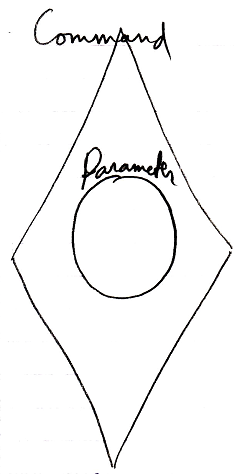 Command
Parameter